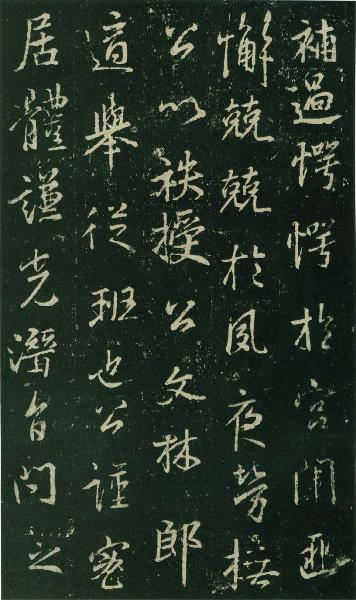 補過愕愕於宮闈匪
懈兢兢於夙夜勞
公以袟授公文林郎
適舉從班也公謹密
居體謙光潛問之